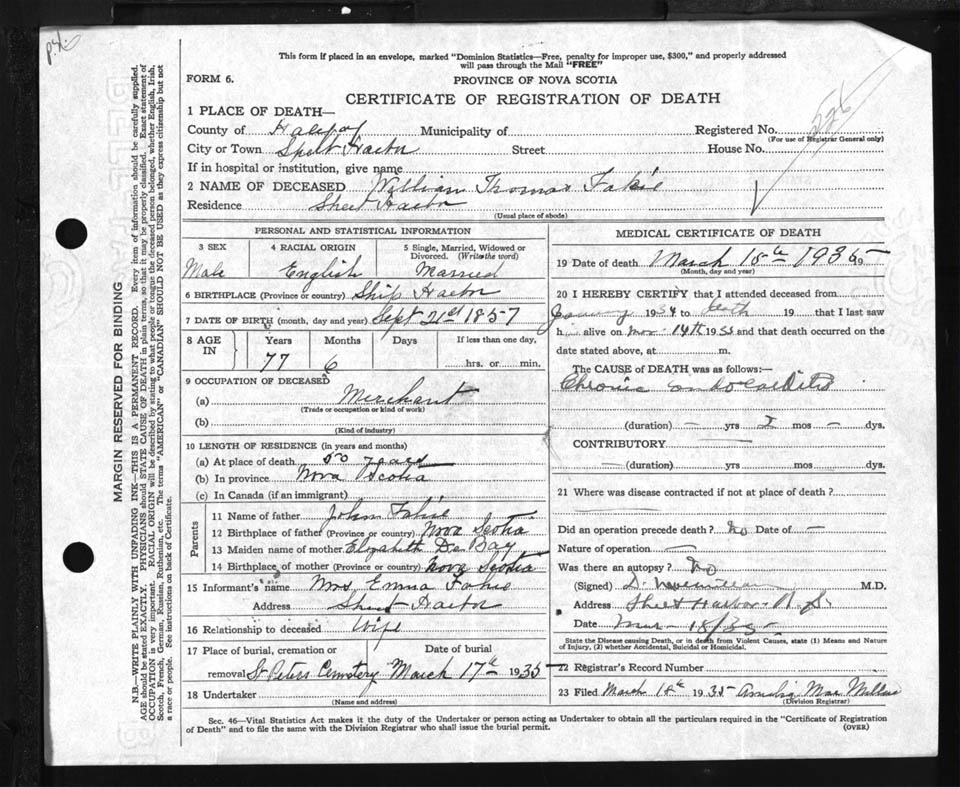 This form if placed in an envelope, marked "Dominion Statistics—Free, penalty for improper use, $300," and properly addressed
will pass through the Mail "FREE"
FORM 6.
PROVINCE OF NOVA SCOTIA
CERTIFICATE OF REGISTRATION OF DEATH
526
1 PLACE OF DEATH—
County of Halifax Municipality of Registered No.
(For use of Registrar General only)
City or Town Sheet Harbor Street House No.
If in hospital or institution, give name
2 NAME OF DECEASED William Thomas Fahie
Residence Sheet Harbor
(Usual place of abode)
PERSONAL AND STATISTICAL INFORMATION
3 SEX 4 RACIAL ORIGIN 5 Single, Married, Widowed or
Divorced. (Write the word)
Male English Married
6 BIRTHPLACE (Province or country) Ship Harbor
7 DATE OF BIRTH (month, day and year) Sept 21st 1857
8 AGE IN Years Months Days If less than one day,
77 6 hrs. or min.
9 OCCUPATION OF DECEASED
(a) Merchant
(Trade or occupation or kind of work)
(b)
(Kind of industry)
10 LENGTH OF RESIDENCE (in years and months)
(a) At place of death 50 years
(b) In province Nova Scotia
(c) In Canada (if an immigrant)
Parents
11 Name of father John Fahie
12 Birthplace of father (Province or country) Nova Scotia
13 Maiden name of mother Elizabeth De Bay
14 Birthplace of mother (Province or country) Nova Scotia
15 Informant's name Mrs Emma Fahie
Address Sheet Harbor
16 Relationship to deceased Wife
17 Place of burial, cremation or Date of burial
removal St Peters Cemetery March 17th 1935
18 Undertaker
(Name and address)
MEDICAL CERTIFICATE OF DEATH
19 Date of death March 15th 1935
(Month, day and year)
20 I HEREBY CERTIFY that I attended deceased from
January 1934 to death 19 that I last saw
h alive on Mar 14th 1935 and that death occurred on the
date stated above, at m.
The CAUSE of DEATH was as follows:—
Chronic endocarditis
(duration) — yrs 2 mos — dys.
CONTRIBUTORY
— (duration) yrs. mos. dys.
21 Where was disease contracted if not at place of death?
Did an operation precede death? no Date of —
Nature of operation —
Was there an autopsy? no
(Signed) M.D.
Address Sheet Harbor N. S.
Date Mar 18/35
State the Disease causing Death, or in death from Violent Causes, state (1) Means and Nature
of Injury, (2) whether Accidental, Suicidal or Homicidal.
22 Registrar's Record Number
23 Filed March 18th 1935 Amelia Mac Millan
(Division Registrar)
Sec. 46—Vital Statistics Act makes it the duty of the Undertaker or person acting as Undertaker to obtain all the particulars required in the "Certificate of Registration
of Death" and to file the same with the Division Registrar who shall issue the burial permit. (OVER)
MARGIN RESERVED FOR BINDING
N.B.—WRITE PLAINLY WITH UNFADING INK—THIS IS A PERMANENT RECORD. Every item of information should be carefully supplied.
AGE should be stated EXACTLY. PHYSICIANS should STATE CAUSE OF DEATH in plain terms, so that it may be properly classified. Exact statement of
OCCUPATION is very important. RACIAL ORIGIN will be described by stating to what people or tongue the deceased person belonged, whether English, Irish,
Scotch, French, German, Russian, Ruthenian, etc. The terms "AMERICAN" or "CANADIAN" SHOULD NOT BE USED as they express citizenship but not
a race or people. See instructions on back of Certificate.